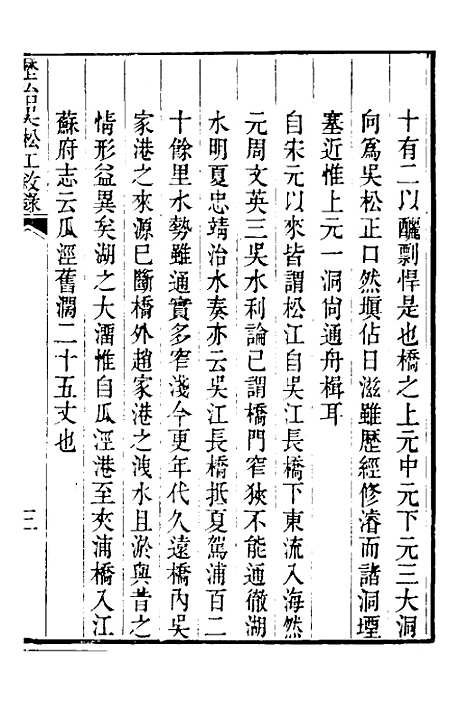 十有二以釃剽悍是也橋之上元中元下元三大洞
向爲吳松正口然塡佔日滋雖歷經修濬而諸洞堙
塞近惟上元一洞尙通舟楫耳
自宋元以來皆謂松江自吳江長橋下東流入海然
元周文英三吳水利論己謂橋門窄狹不能通徹湖
水明夏忠靖治水奏亦云吳江長橋抵夏駕浦百二
十餘里水勢雖通實多窄淺今更年代久遠橋內吳
家港之來源已斷橋外趙家港之洩水且淤與昔之
情形益異矣湖之大溜惟自瓜涇港至夾浦橋入江
蘇府志云瓜涇舊濶二十五丈也
吳松江敘錄
三